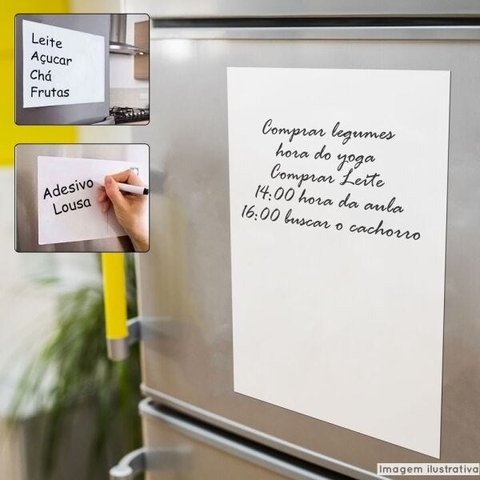 Leite
Açucar
Chá
Frutas
Adesivo
Lousa
Comprar legumes
hora do yoga
Comprar Leite
14:00 hora da aula
16:00 buscar o cachorro
Imagem ilustrativa